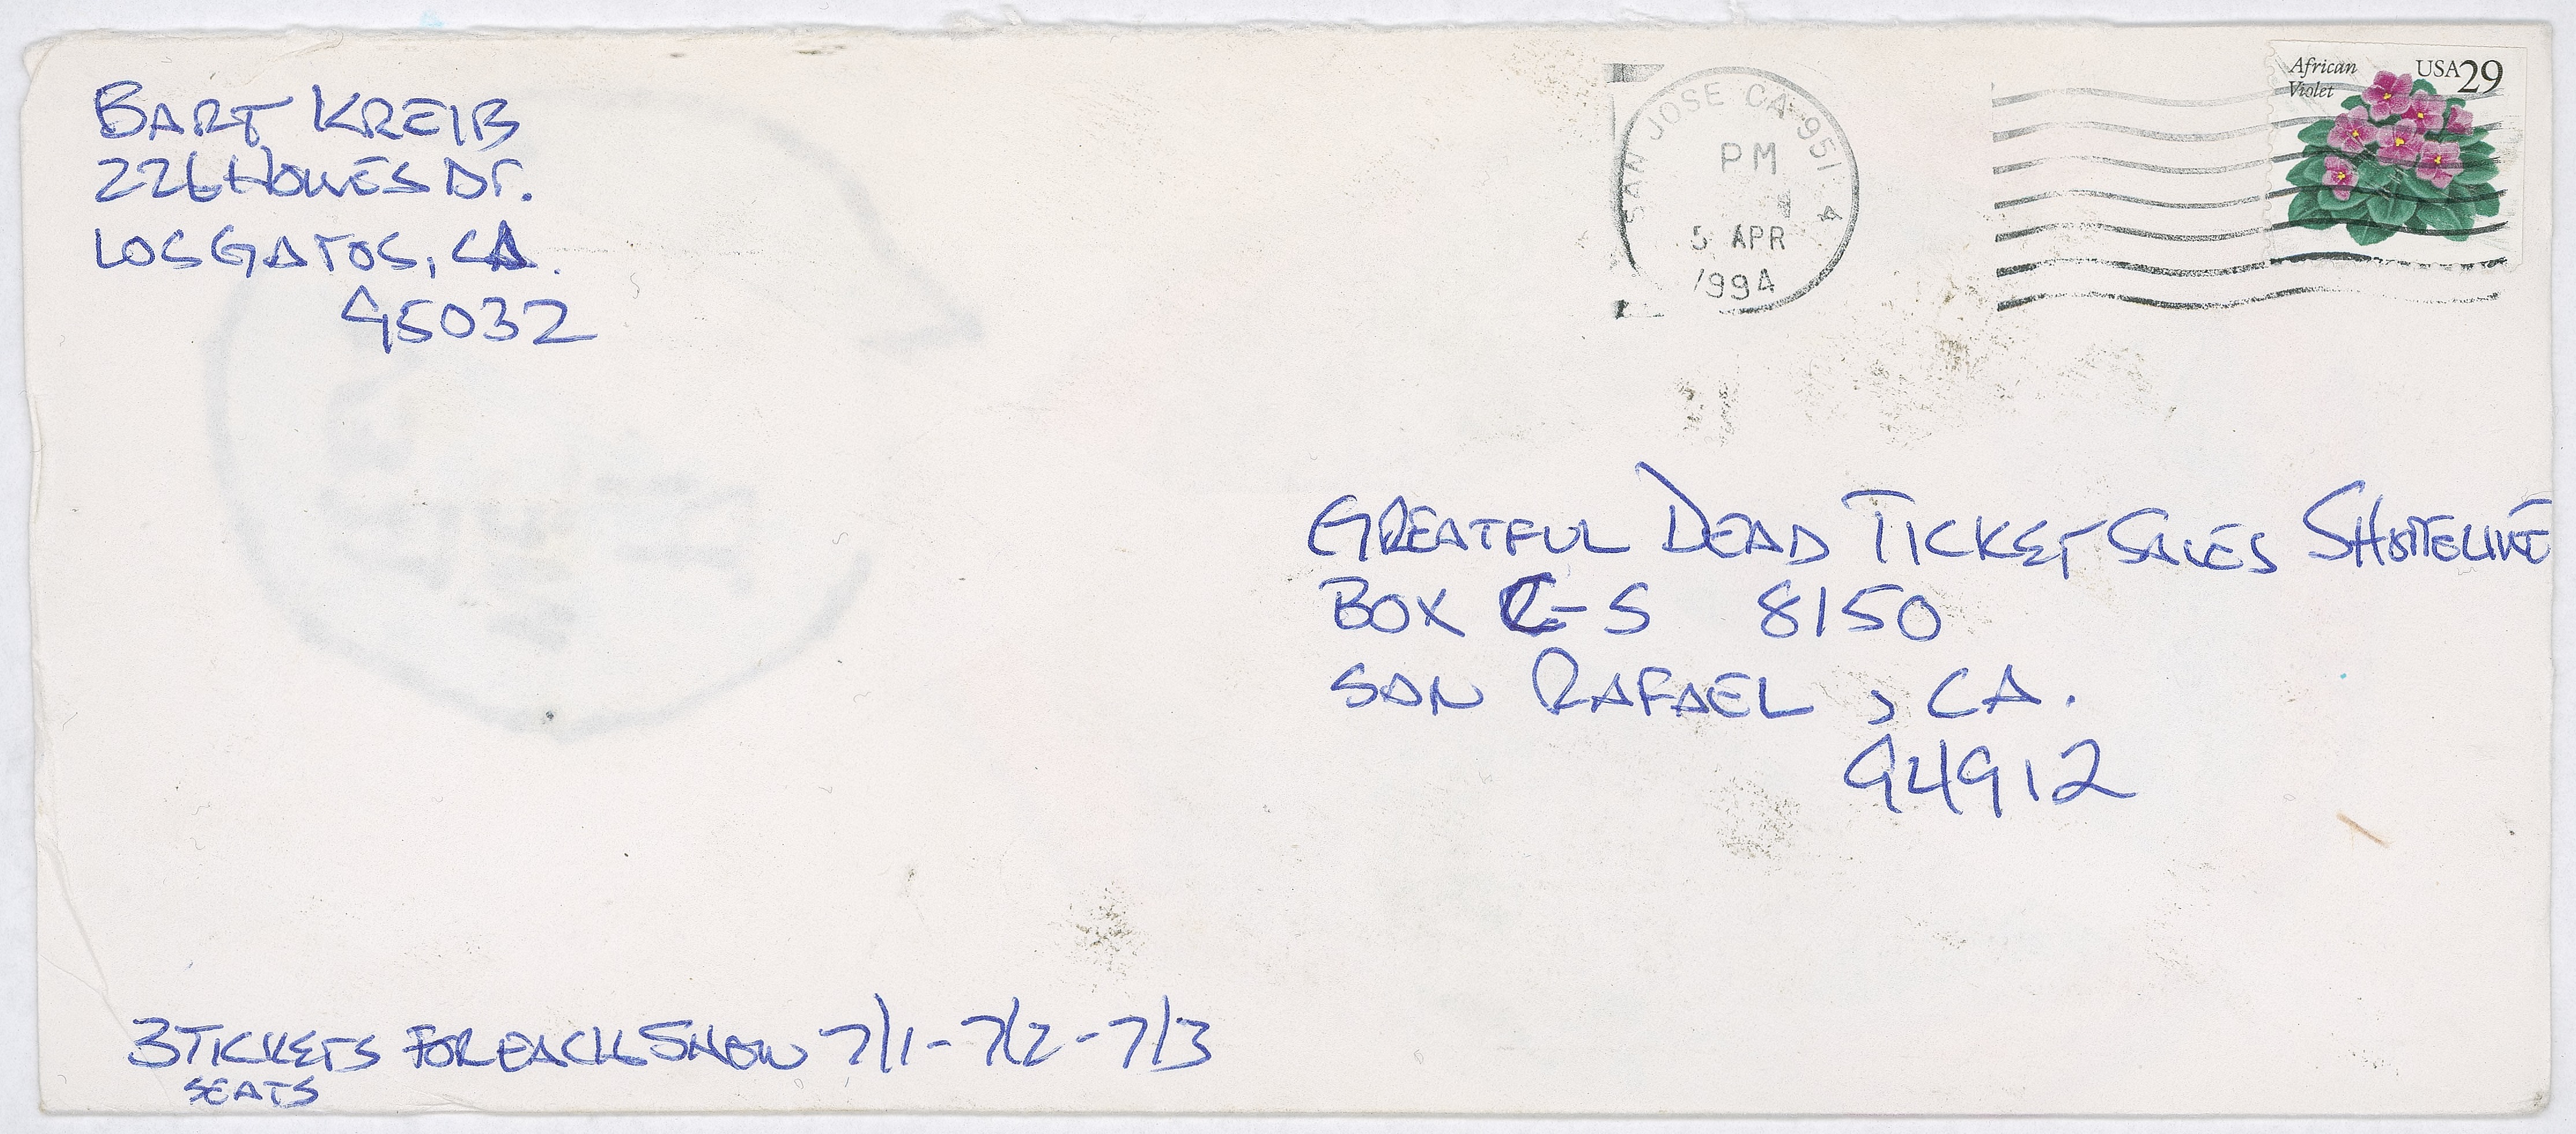 BART KREIB
226 HOWES Dr.
LOS GATOS, CA.
95032
SAN JOSE CA 951
PM
5 APR
1994
African
Violet
USA 29
GREATFUL DEAD TICKET SALES SHORELINE
BOX C-S 8150
SAN RAFAEL, CA.
94912
3 TICKETS FOR EACH SHOW 7/1 - 7/2 - 7/3
SEATS